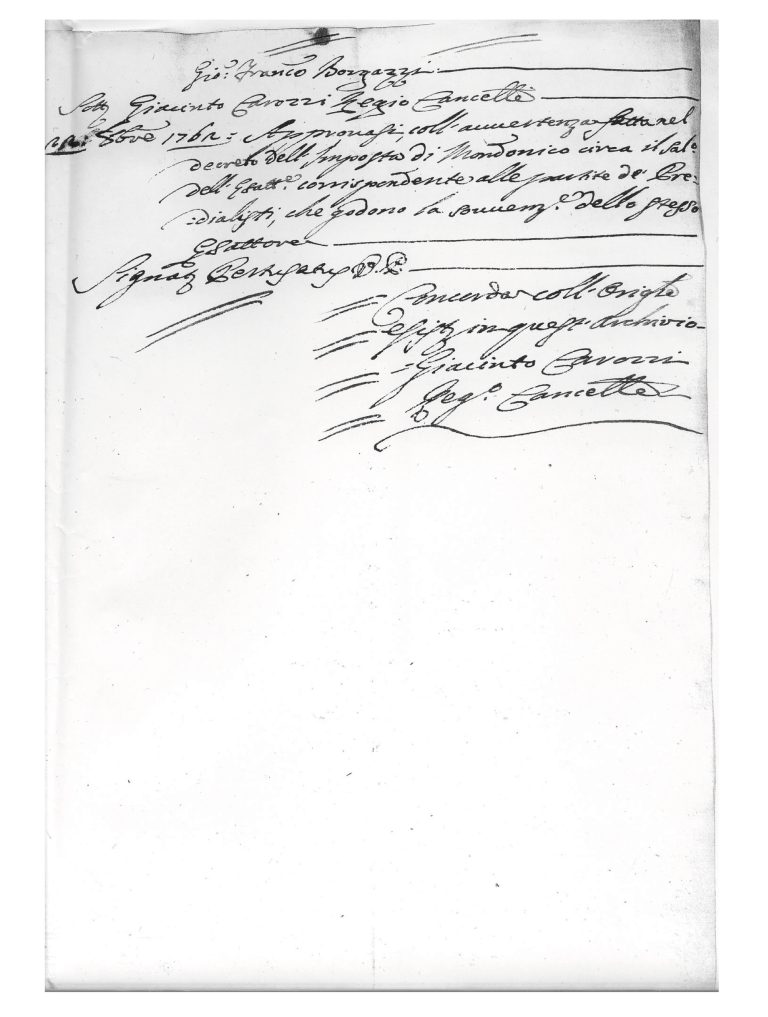 Gio: Franco Borgazzi
Sott Giacinto Carozzi Regio Cancelle
22: 8bre 1762: Approvasi, coll'avvertenza fatta nel
decreto dell'Imposta di Mondonico circa il Sal.o
dell'Esatt.e corrispondente alle partite de' Pre-
=dialisti, che godono la sovvenz.e dello stesso
Esattore
Signat Pertusatus P. P.
Concorda coll'Origle
esist in quest'archivio
=Giacinto Carozzi
Reg.o Cancelle